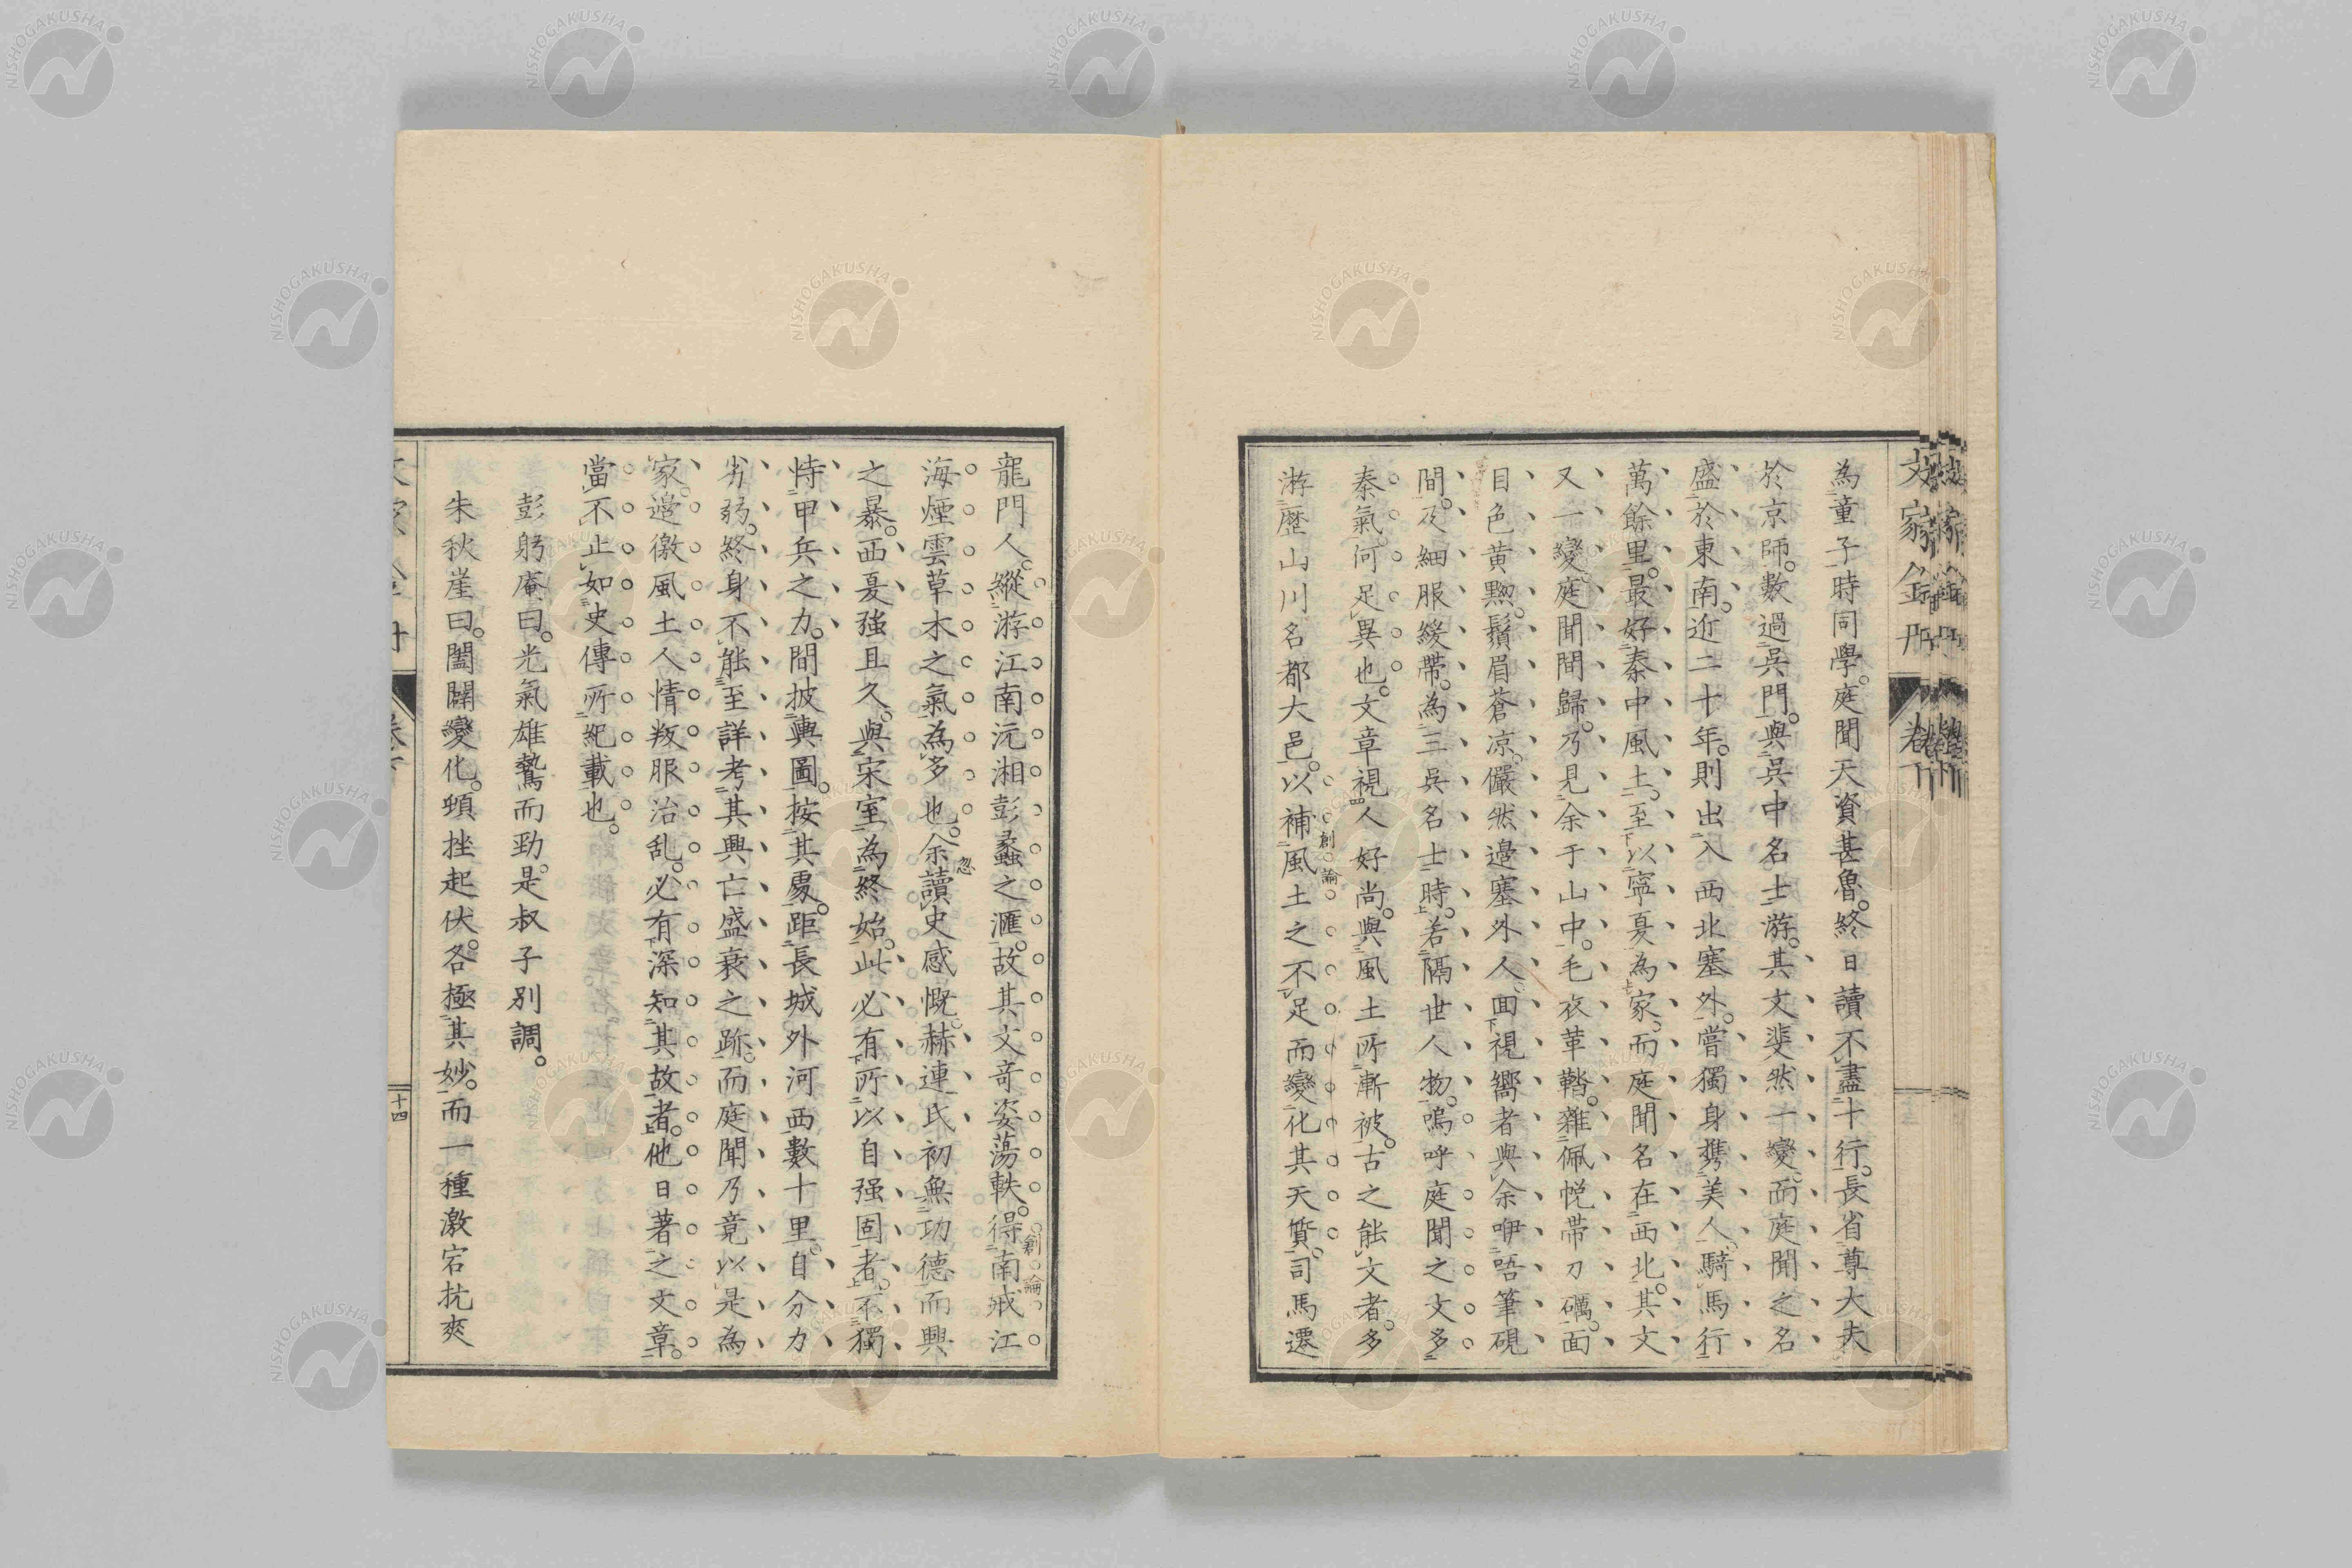 為童子時同學。庭聞天資甚魯。終日讀不盡十行。長省尊大夫
於京師。數過吳門。與吳中名士游。其文斐然一變。而庭聞之名
盛於東南。近二十年。則出入西北塞外。嘗獨身攜美人。騎馬行
萬餘里。最好秦中風土。至以寧夏為家。而庭聞名在西北。其文
又一變。庭聞間歸。乃見余于山中。毛衣革鞜。雜佩帨帶刀礪。面
目色黄黦。鬚眉蒼凉。儼然邊塞外人。面視嚮者與余咿唔筆硯
間。及細服緩帶。為三吳名士時。若隔世人物。嗚呼庭聞之文多
秦氣。何足異也。文章視人好尚。與風土所漸被。古之能文者。多
游歷山川名都大邑。以補風土之不足而變化其天質。司馬遷
創論
文家金丹
卷下
龍門人。縱游江南沅湘彭蠡之滙。故其文奇姿蕩軼。得南戒江
創論
海煙雲草木之氣為多也。余讀史感慨。赫連氏初無功德而興
忽
之暴。西夏強且久。與宋室為終始。此必有所以自强固者。不獨
恃甲兵之力。間披輿圖。按其處。距長城外河西數十里。自分力
劣弱。終身不能至詳考其興亡盛衰之跡。而庭聞乃竟以是為
家。邊徼風土人情叛服治乱。必有深知其故者。他日著之文章。
當不止如史傳所紀載也。
彭躬庵曰。光氣雄鷙而勁。是叔子別調。
朱秋崖曰。闔闢變化。頓挫起伏。各極其妙。而一種激宕抗爽
十四